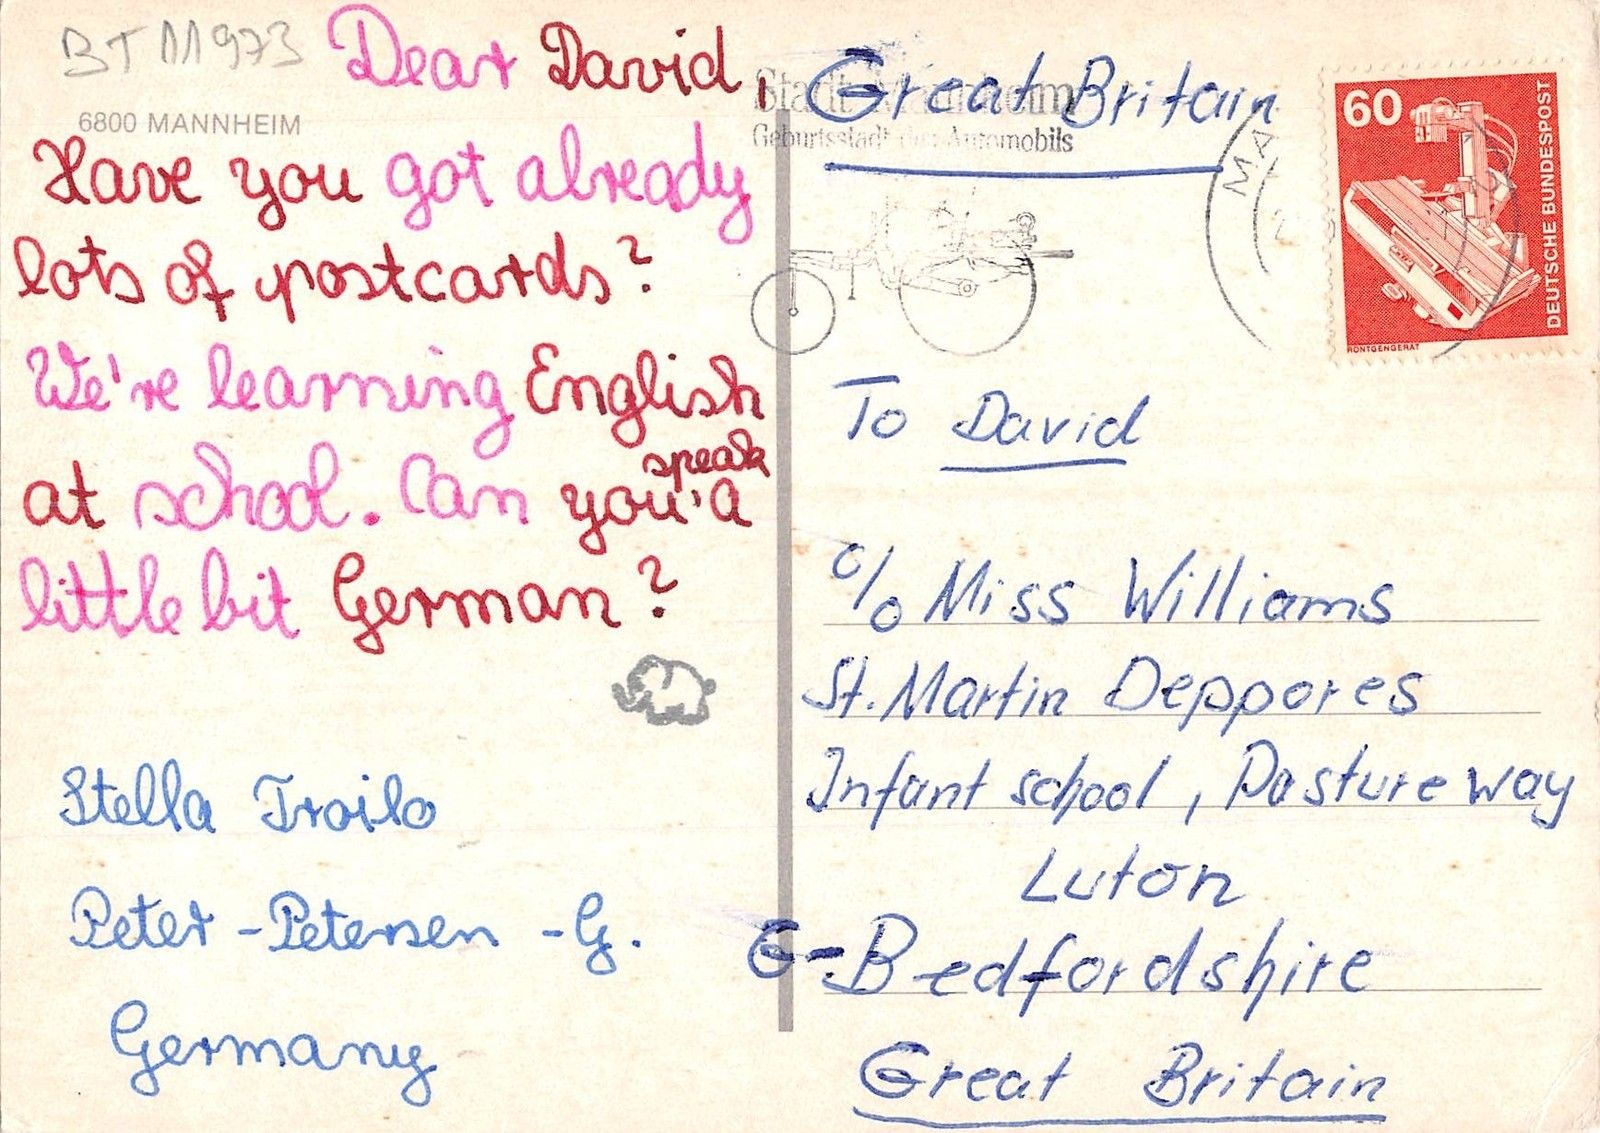 BT 11973
Dear David,
6800 MANNHEIM
Have you got already
lots of postcards?
We're learning English
at school. Can you a
speak
little bit German?
Stella Troilo
Peter-Petersen-G.
Germany
Stadt Mannheim
Geburtsstadt des Automobils
Great Britain
MA
60
DEUTSCHE BUNDESPOST
RÖNTGENGERÄT
To David
c/o Miss Williams
St. Martin Deppores
Infant school, Pasture way
Luton
G-Bedfordshire
Great Britain